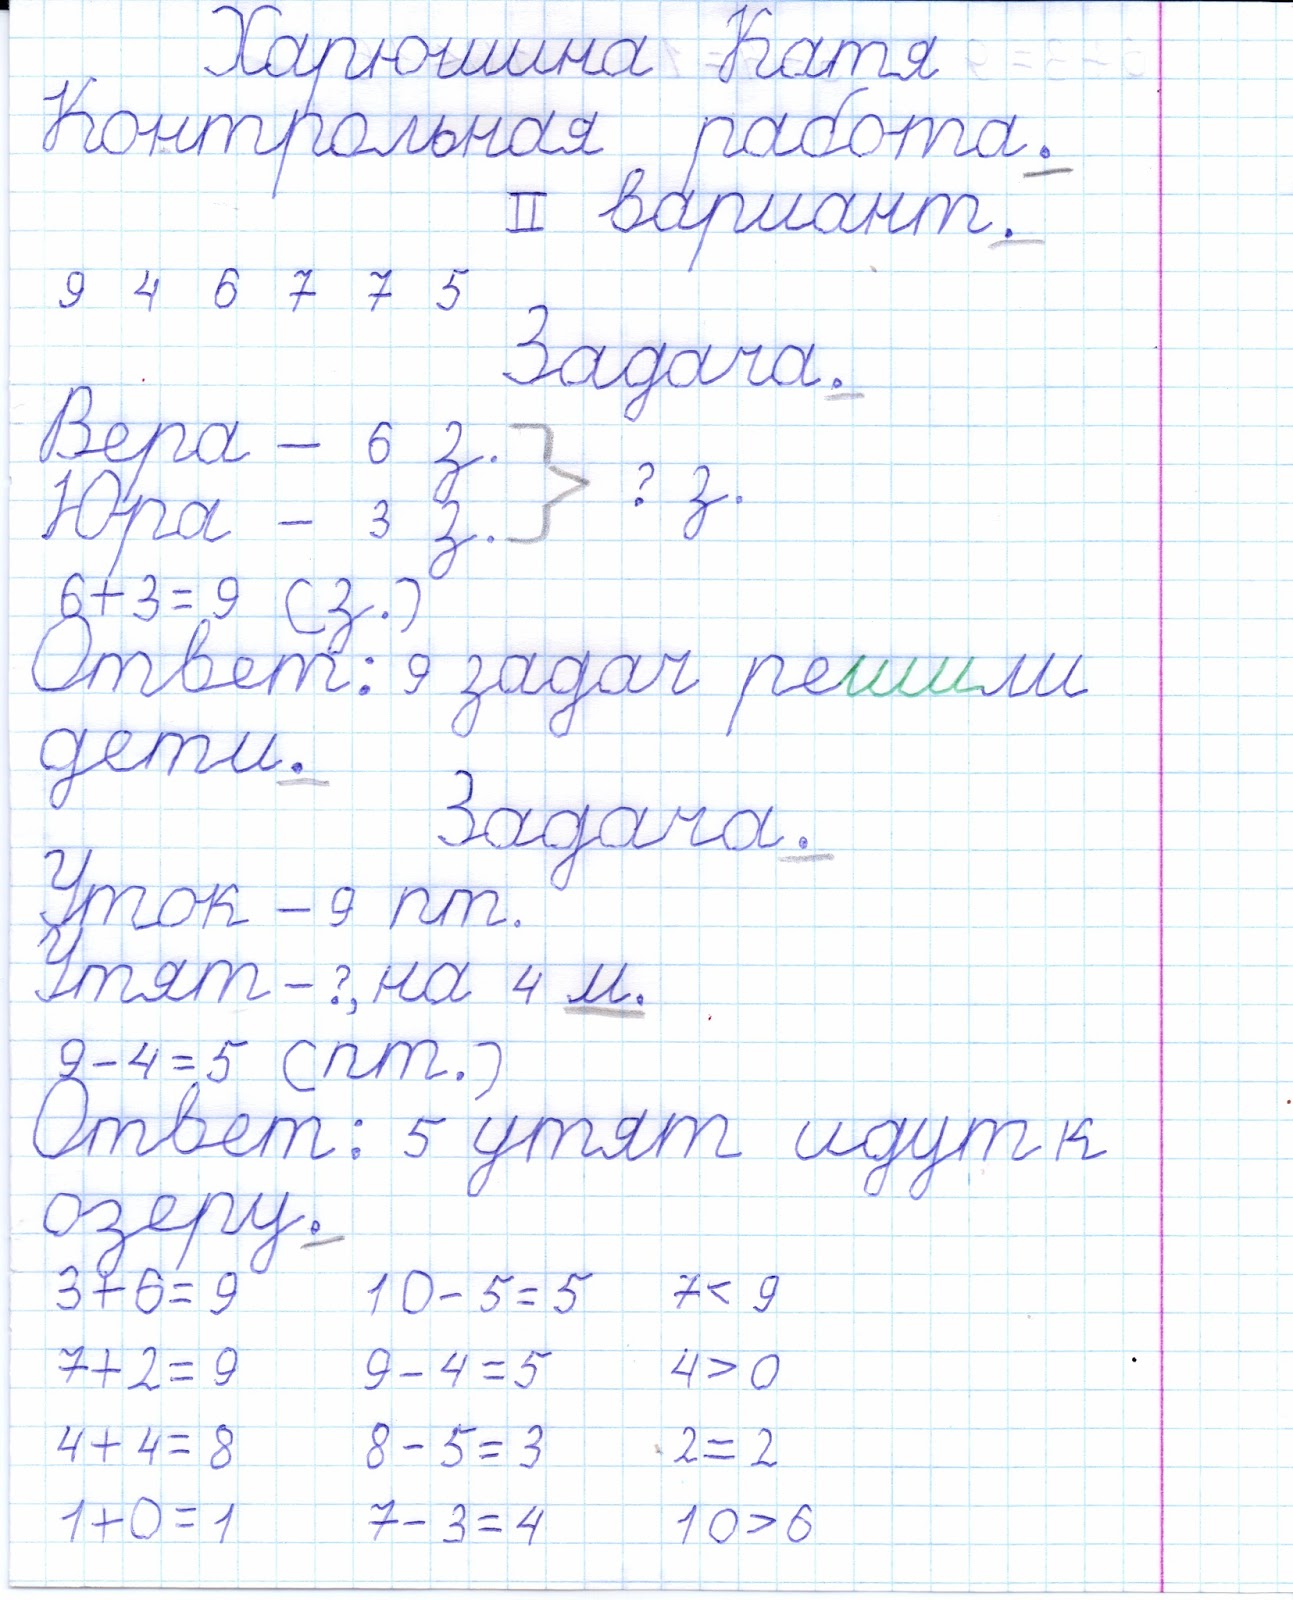 Харюшина Катя
Контрольная работа.
II вариант.
9 4 6 7 7 5
Задача.
Вера – 6 з.
Юра – 3 з. } ? з.
6+3=9 (з.)
Ответ: 9 задач решили
дети.
Задача.
Уток – 9 пт.
Утят – ?, на 4 м.
9-4=5 (пт.)
Ответ: 5 утят идут к
озеру.
3+6=9 10-5=5 7<9
7+2=9 9-4=5 4>0
4+4=8 8-5=3 2=2
1+0=1 7-3=4 10>6